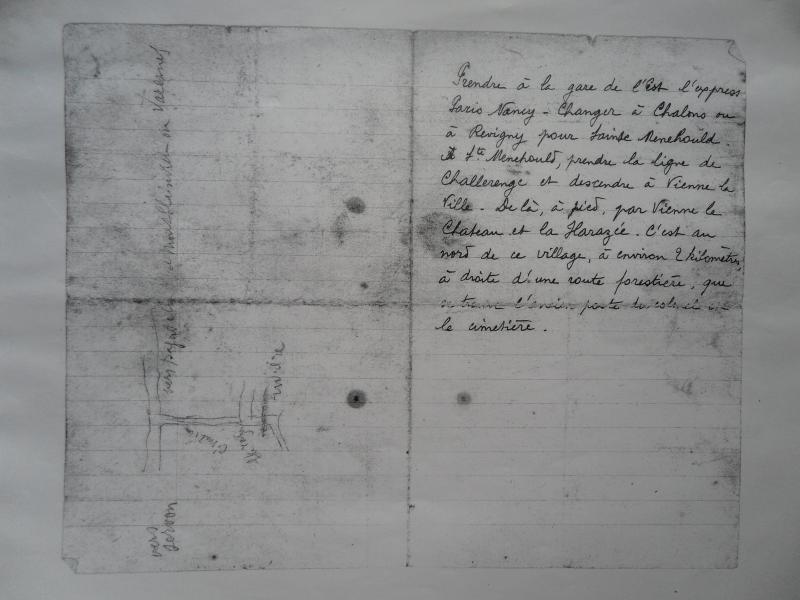 Prendre à la gare de l'Est l'express
Paris Nancy - Changer à Chalons ou
à Revigny pour Sainte Menehould.
A Ste Menehould, prendre la ligne de
Challerange et descendre à Vienne la
Ville - De là, à pied, par Vienne le
Chateau et la Harazée. C'est au
nord de ce village, à environ 2 kilomètres,
à droite d'une route forestière, que
se trouve l'ancien poste de
le cimetière.
vers
ou Varennes
vers
Servon